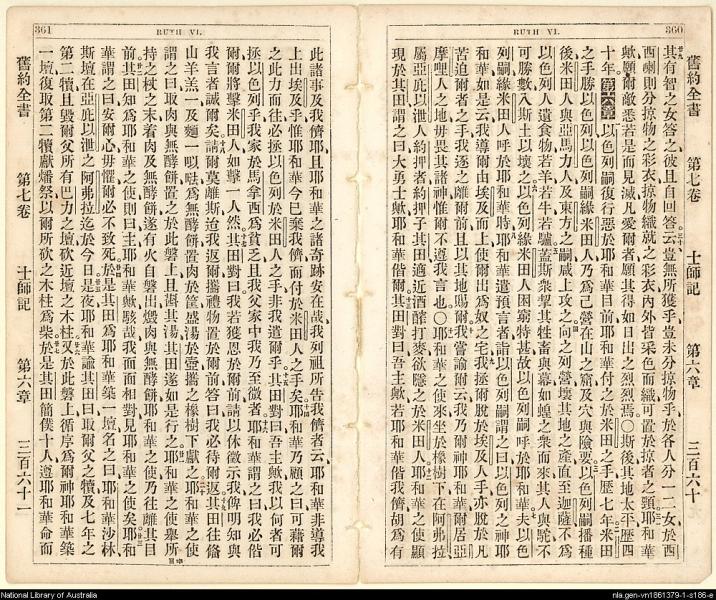 360
RUTH VI.
舊約全書 第七卷 士師記 第六章 三百六十
其有智之女答之彼且自回答云豈無所獲乎豈未分掠物乎於各人分一二女於西
西喇則分掠物之彩衣掠物織就之彩衣內外皆采色而織可置於掠者之頸耶和華
歟願爾敵悉若是而見滅凡愛爾者願其得如日出之烈烈焉○斯後其地太平歷四
十年第六章以色列嗣復行惡於耶和華目前耶和華付之於米田之手歷七年米田
之手勝以色列以色列嗣緣米田人乃爲己營在山之窟及穴與險要以色列嗣播種
後米田人與亞馬力人及東方之嗣咸上攻之向之列營壞其地之產直至迦薩不爲
以色列人遺食物若羊若牛若驢蓋斯衆挈其牲畜與幕如蝗之衆而來其人與駝不
可勝數入斯土以壞之以色列緣米田人困窮特甚故以色列嗣呼於耶和華夫以色
列嗣緣米田人呼於耶和華時耶和華遣預言者詣以色列嗣謂之曰以色列之神耶
和華如是云我導爾由埃及而上使爾出爲奴之宅我拯爾脫於埃及人手亦脫於凡
苦迫爾者之手我逐之離爾前且以其地賜爾我嘗諭爾云我乃爾神耶和華爾居亞
摩哩人之地毋畏其諸神惟爾不遵我言也○耶和華之使來坐於橡樹下在阿弗拉
屬亞庇以泄人約押者約押子其田適近酒醡打麥欲隱之於米田人耶和華之使顯
現於其田謂之曰大勇士歟耶和華偕爾其田對曰吾主歟若耶和華偕我儕胡爲有
361
RUTH VI.
此諸事及我儕耶且耶和華之諸奇跡安在哉我列祖所告我儕者云耶和華非導我
上出埃及乎惟耶和華今已棄我儕而付於米田人之手矣耶和華乃顧之曰可藉爾
之此力而往必拯以色列於米田人之手非我遣爾乎其田對曰吾主歟我以何者可
拯以色列乎我家於馬拿西爲貧乏且我父家中我乃至微者耶和華謂之曰我必偕
爾爾將擊米田人如擊一人然其田對曰我若獲恩於爾前請以休徵示我俾明知與
我言者誠爾矣請爾莫離斯迨我返爾攜禮物置於爾前答曰我必待爾返其田往脩
山羊羔一及麵一𠲖法爲無酵餅置肉於筐盛湯於壺攜之橡樹下獻之耶和華之使
謂之曰取肉與無酵餅置之於此磐上且斟其湯其田遂如是行之耶和華之使舉所
持之杖之末着肉及無酵餅遂有火自磐出燬肉與無酵餅耶和華之使乃往離其目
前其田知爲耶和華之使則曰主耶和華歟駭哉我而面相對見耶和華之使矣耶和
華謂之曰安爾心毋懼爾必不致死於是其田爲耶和華築一壇名之曰耶和華沙林
斯壇在亞庇以泄之阿弗拉迄於今日是夜耶和華諭其田曰取爾父之犢及七年之
第二犢且毀爾父所有巴力之壇砍近壇之木柱又於此磐上循序爲爾神耶和華築
一壇復取第二犢獻燔祭以爾所砍之木柱爲柴於是其田簡僕十人遵耶和華命而
舊約全書 第七卷 士師記 第六章 三百六十一
National Library of Australia
nla.gen-vn1861379-1-s186-e